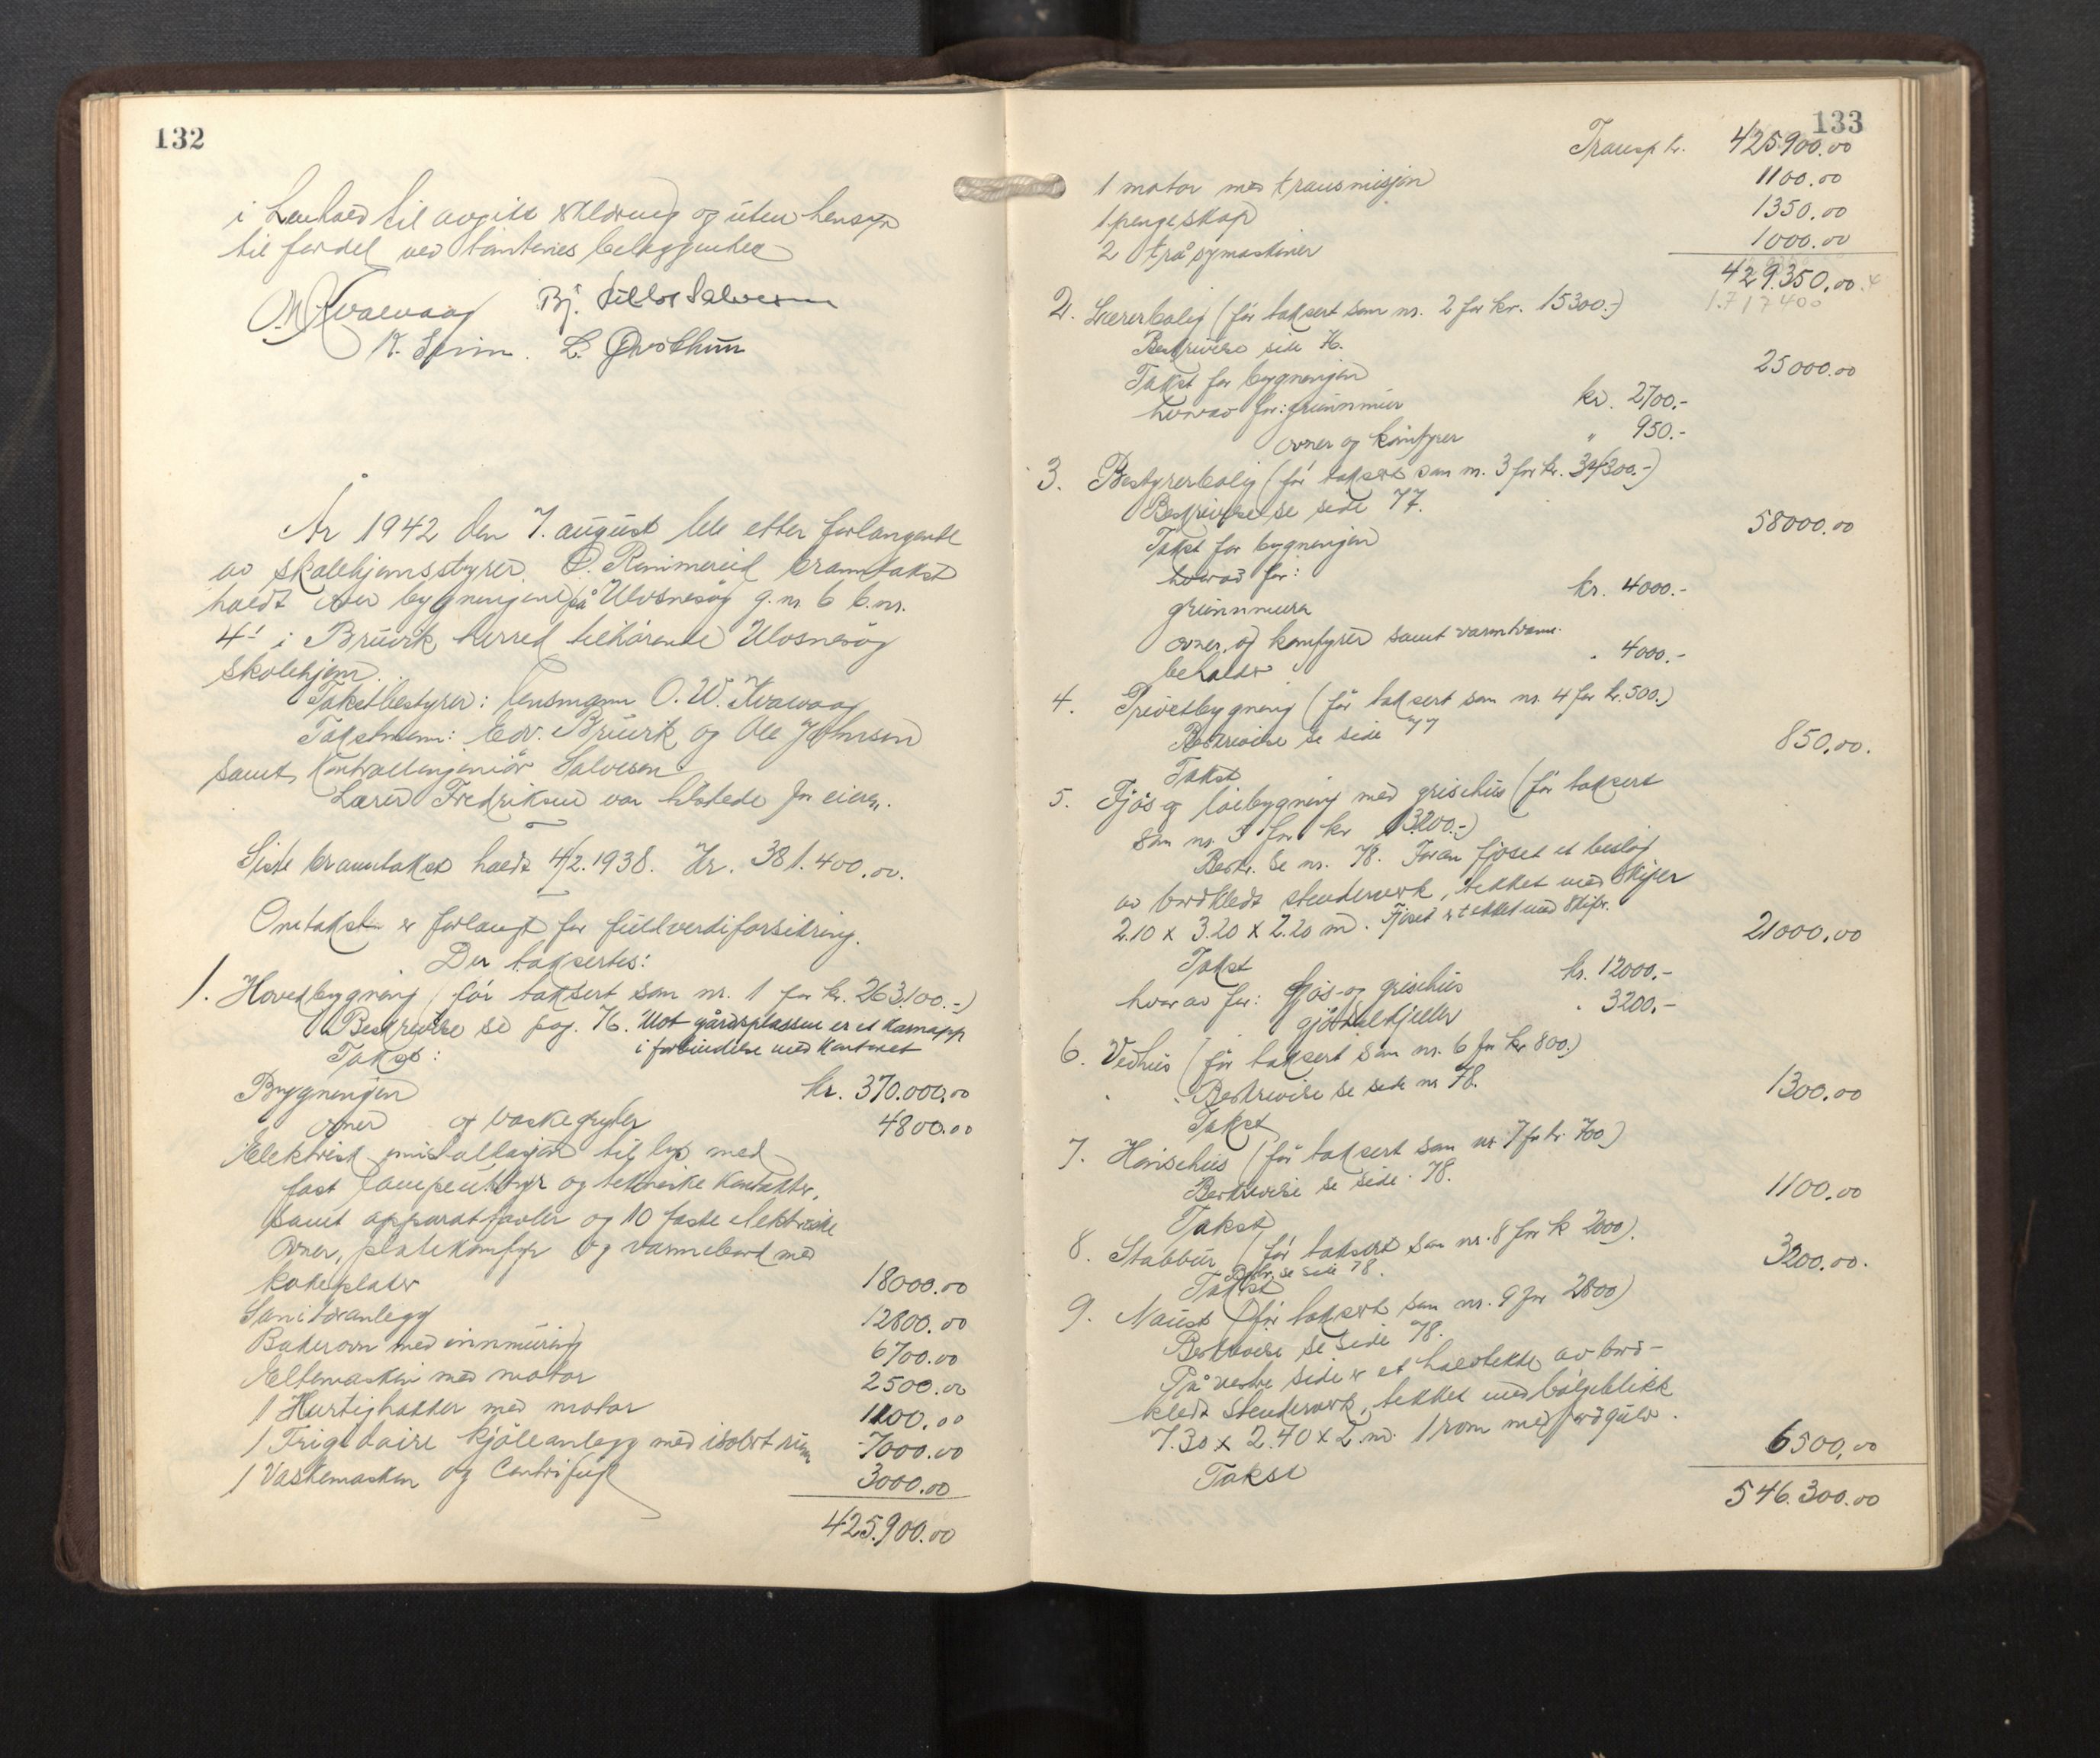 132
i henhold til avgitt erklæring og uten hensyn
til fordel ved tomtenes beliggenhet
O. W. Kvamvaag Bj. Salvesen
K. L.
År 1942 den 7. august ble etter forlangende
av skolehjemsstyrer O. Rimmereid branntakst
holdt over bygningene på Ulvsnesøy g.nr. 6 b.nr.
4 i Bruvik herred tilhørende Ulvsnesøy
skolehjem.
Takstbestyrer: lensmann O. W. Kvamvaag
Takstmenn: Edv. Bruvik og Ole Johnsen
samt Kontrollingeniør Salvesen
Lærer Fredriksen var tilstede for eieren.
Siste branntakst holdt 4/2.1938. Kr. 381.400.00.
Omtakst er forlangt for fullverdiforsikring.
Der taksertes:
1. Hovedbygning (før taksert som nr. 1 for kr. 263100.-)
Beskrivelse se pag. 76. Mot gårdsplassen er et karnapp
i forbindelse med kontoret
Takst:
Bygningen kr. 370.000.00
ovner og vaskegryter 4800.00
Elektrisk innstallasjon til lys med
fast lampeutstyr og tekniske kontakter,
samt apparattavler og 10 faste elektriske
ovner, platekomfyr og varmebord med
kokeplater 18000.00
Sanitæranlegg 12800.00
Bakerovn med innmuring 6700.00
Eltemaskin med motor 2500.00
1 Hurtighakker med motor 1100.00
1 Frigidaire kjøleanlegg med isolert rum 7000.00
1 Vaskemaskin og Centrifuge 3000.00
425.900.00
133
Transp kr. 425.900.00
1 motor med transmisjon 1100.00
1 pengeskap 1350.00
2 trå symaskiner 1000.00
429.350.00
1.717400
2. Lærerbolig (før taksert som nr. 2 for kr. 15300.-)
Beskrivelse side 76.
Takst for bygningen 25000.00
hvorav for: grunnmur kr. 2700.-
ovner og komfyrer " 950.-
3. Bestyrerbolig (før taksert som nr. 3 for kr. 300.-)
Beskrivelse se side 77.
Takst for bygningen 58000.00
hvorav for:
grunnmuren kr. 4000.-
ovner og komfyrer samt varmtvanns-
beholder " 4000.-
4. Privetbygning (før taksert som nr. 4 for kr. 500.)
Beskrivelse se side 77
Takst 850.00.
5. Fjøs og løebygning med grisehus (før taksert
som nr. 5 for kr. 13200.-)
Beskr. se nr. 78. Foran fjøset et beslag
av bordkledt stenderverk, tekket med skifer
2.10 x 3.20 x 2.20 m. Fjøset er tekket med skifer.
Takst 21000.00
hvorav for: fjøs og grisehus kr. 12000.-
gjødselkjeller " 3200.-
6. Vedhus (før taksert som nr. 6 for kr. 800.)
Beskrivelse se side nr 78.
Takst 1300.00
7. Hønsehus (før taksert som nr. 7 for kr. 700)
Beskrivelse se side 78.
Takst 1100.00
8. Stabbur (før taksert som nr. 8 for kr 2000).
Beskr. se side 78.
Takst 3200.00.
9. Naust (før taksert som nr. 9 for 2800)
Beskrivelse se side 78.
På vestre side er et halvtekke av bord-
kledt stenderverk, tekket med bølgeblikk
7.30 x 2.40 x 2 m. 1 rom med jordgulv.
Takst 6500.00
546.300.00